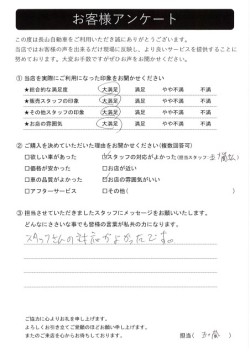 お客様アンケート
この度は長山自動車をご利用いただき誠にありがとうございます。
当店ではお客様の声を出来るだけ現場に反映し、より良いサービスを提供することに
努めております。大変お手数ですがぜひお声をお聞かせください。
① 当店を実際にご利用になった印象をお聞かせください
★総合的な満足度 大満足 満足 やや不満 不満
★販売スタッフの印象 大満足 満足 やや不満 不満
★その他スタッフの印象 大満足 満足 やや不満 不満
★お店の雰囲気 大満足 満足 やや不満 不満
② ご購入を決めていただいた理由をお聞かせください(複数回答可)
□欲しい車があった □スタッフの対応がよかった(担当スタッフ
□価格が安かった □お店が近い
□車の品質がよかった □お店の雰囲気がいい
□アフターサービス □その他( )
③ 担当させていただきましたスタッフにメッセージをお願いいたします。
どんなにささいな事でも皆様の言葉が私共の力になります。
スタッフさんの対応がよかったです。
ご協力に心よりお礼を申し上げます。
よろしくお引き立てご愛顧のほどお願い申し上げます。
またのご来店を心からお待ちしております。 担当( )